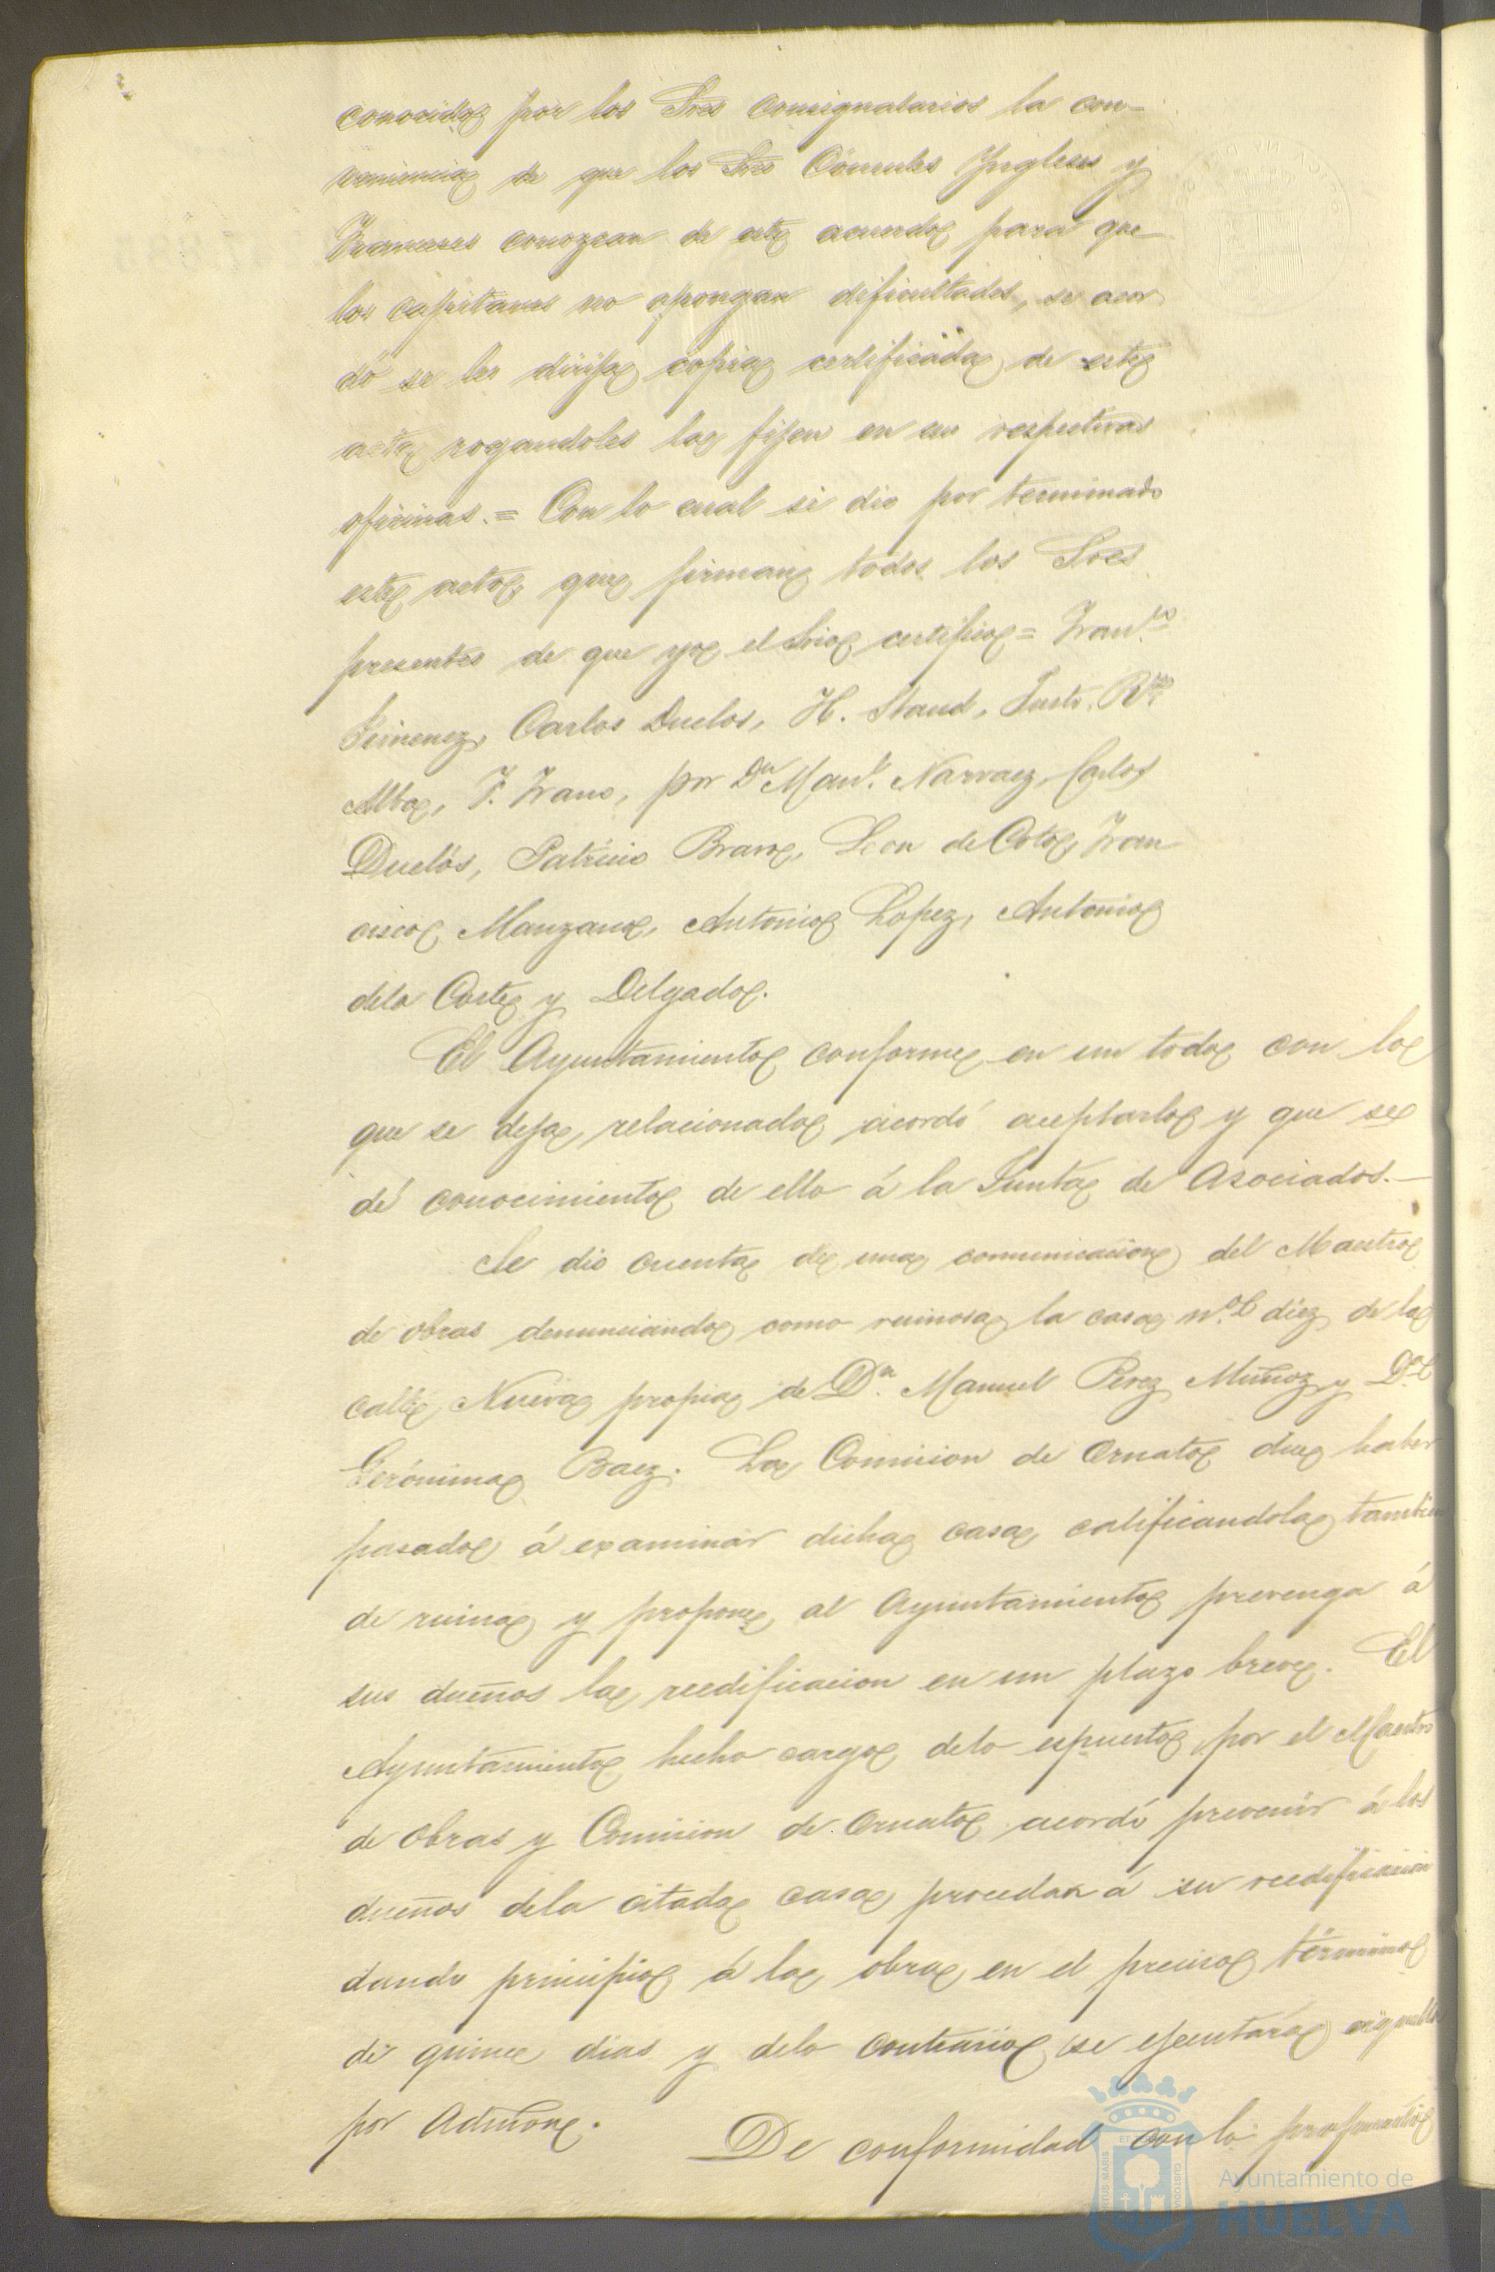 conocida por los Sres Consignatarios la con-
veniencia de que los Sres Cónsules Yngleses y
Franceses conozcan de este acuerdo para que
los capitanes no opongan dificultades, se acor
dó se les dirija copia certificada de esta
acta rogandoles las fijen en sus respectivas
oficinas.= Con lo cual se dio por terminado
este acto, que firman todos los Sres
presentes de que yo el Srio certifico= Fran.co
Gimenez, Carlos Duclos, H. Staud, Justo
Alba, F. Franc, por Dn Man.l Narvaez, Carlos
Duclós, Patricio Bravo, Leon de Coto, Fran
cisco Manzano, Antonio Lopez, Antonio
dela Corte y Delgado.
El Ayuntamiento conforme en un todo con lo
que se deja relacionado acordó aceptarlo y que se
dé conocimiento de ello á la Junta de Asociados.-
Se dio cuenta de una comunicacion del Maestro
de obras denunciando como ruinosa la casa n.º diez de la
calle Nueva propia de Dn. Manuel Perez Muñoz y D.ª
Gerónima Baez. La Comision de Ornato dice haber
pasado á examinar dicha casa calificandola tambien
de ruina y propone al Ayuntamiento prevenga á
sus dueños la reedificacion en un plazo breve. El
Ayuntamiento hecho cargo delo espuesto por el Maestro
de obras y Comision de Ornato acordó prevenir á los
dueños dela citada casa procedan á su reedificacion
dando principio á la obra en el preciso término
de quince dias y delo contrario se ejecutará aquella
por Admon.
De conformidad con lo propuesto
Ayuntamiento de
HUELVA